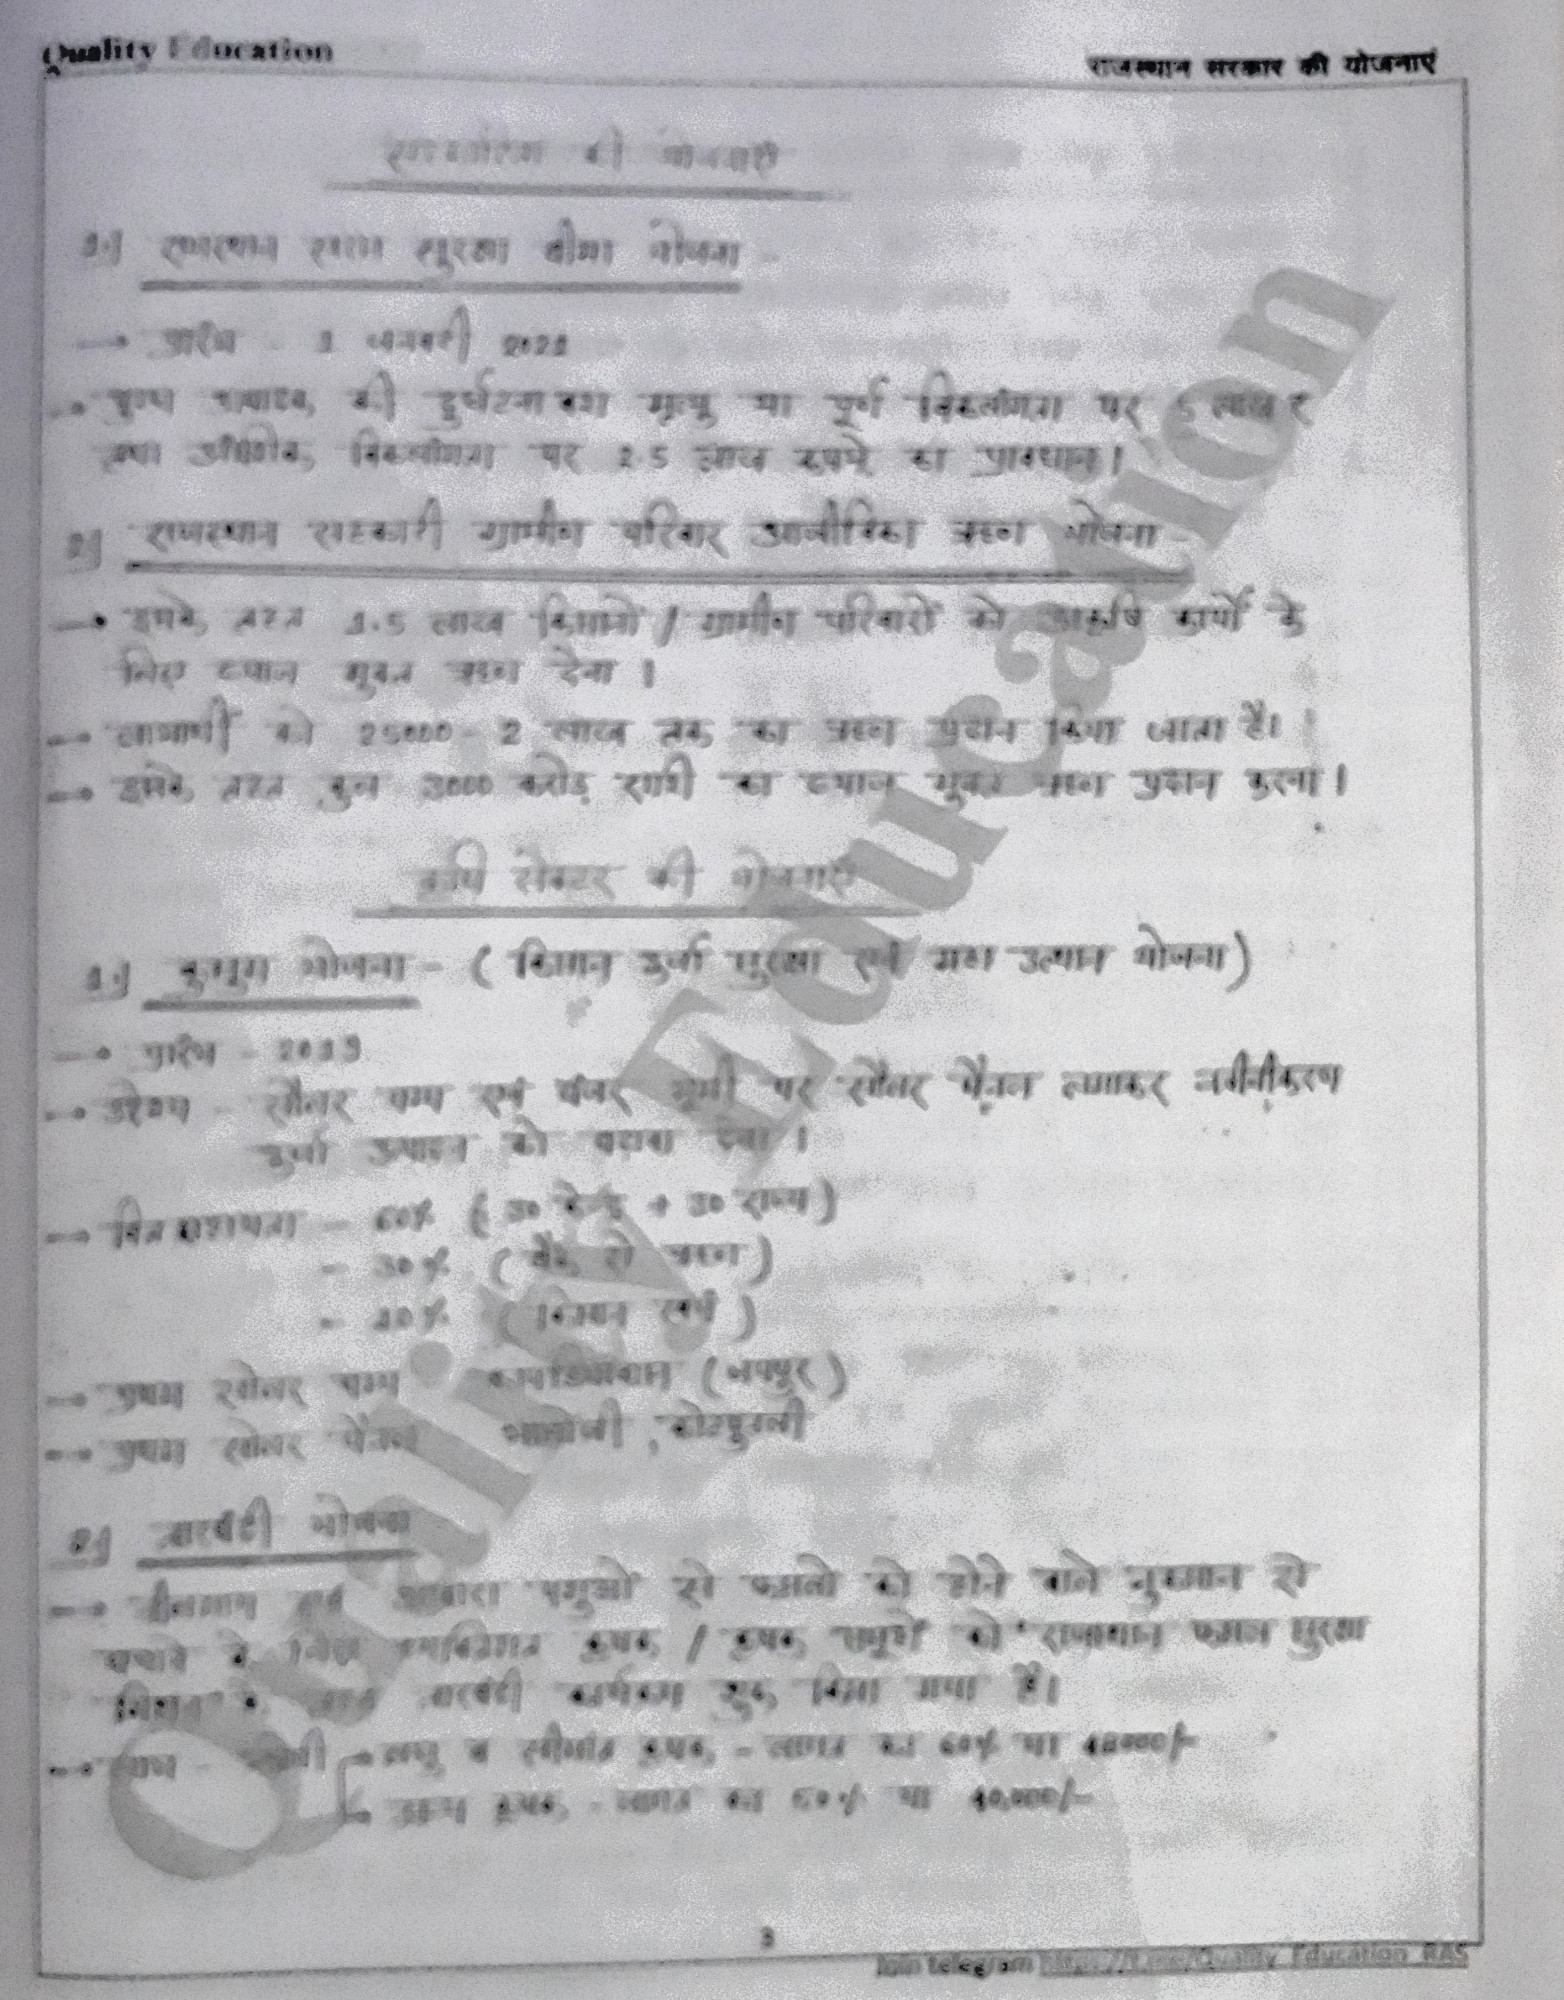 Quality Education
राजस्थान सरकार की योजनाएं
की योजनाएं
1.) राजस्थान सुरक्षा बीमा योजना -
→ प्रारंभ - 1 जनवरी 2021
→ की दुर्घटनावश मृत्यु या पूर्ण विकलांगता पर 5 लाख ₹
तथा आंशिक विकलांगता पर 2.5 लाख रुपये का प्रावधान।
2.) राजस्थान सहकारी ग्रामीण परिवार आजीविका ऋण योजना -
→ इसके तहत 1.5 लाख किसानों / ग्रामीण परिवारों को अकृषि कार्यों के
लिए ब्याज मुक्त ऋण देना।
→ लाभार्थी को 25000 - 2 लाख तक का ऋण प्रदान किया जाता है।
→ इसके तहत कुल 3000 करोड़ राशी का ब्याज मुक्त ऋण प्रदान करना।
कृषि सेक्टर की योजनाएं
1.) कुसुम योजना - ( किसान ऊर्जा सुरक्षा एवं महा उत्थान योजना )
→ प्रारंभ - 2019
→ उद्देश्य - सौलर पम्प एवं बंजर भूमी पर सौलर पैनल लगाकर नवीनीकरण
ऊर्जा उत्पादन को बढावा देना।
→ वित्त सहायता - 60% ( 30 केन्द्र + 30 राज्य )
- 30% ( बैंक से ऋण )
- 10% ( किसान स्वयं )
→ प्रथम सोलर पम्प (जयपुर)
→ प्रथम सोलर पैनल भालोजी, कोटपुतली
2.) तारबंदी योजना
→ नीलगाय एवं आवारा पशुओं से फसलो को होने वाले नुकसान से
बचाने के लिए व्यक्तिगत कृषक / कृषक समूहों को राजस्थान फसल सुरक्षा
मिशन के तहत तारबंदी कार्यक्रम शुरू किया गया है।
→ लघु व सीमांत कृषक - लागत का 60% या 48000/-
→ अन्य कृषक - लागत का 50% या 40,000/-
3
Join telegram https://t.me/Quality_Education_RAS
Quality Education